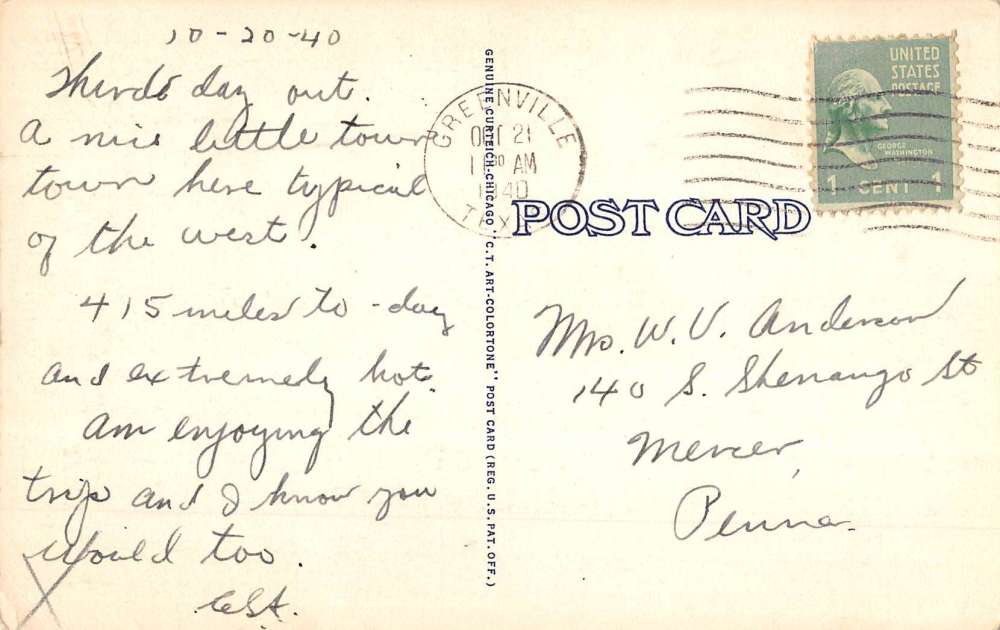 10-20-40
Third day out.
A nice little town
town here typical
of the west.
415 miles to-day
and extremely hot.
Am enjoying the
trip and I know you
would too.
GENUINE CURTEICH-CHICAGO "C.T. ART-COLORTONE" POST CARD (REG. U.S. PAT. OFF.)
GREENVILLE
OCT 21
AM
1940
TEX
UNITED
STATES
POSTAGE
GEORGE
WASHINGTON
1 CENT 1
POST CARD
Mrs. W. V. Anderson
140 S. Shenango St
Mercer,
Penna.